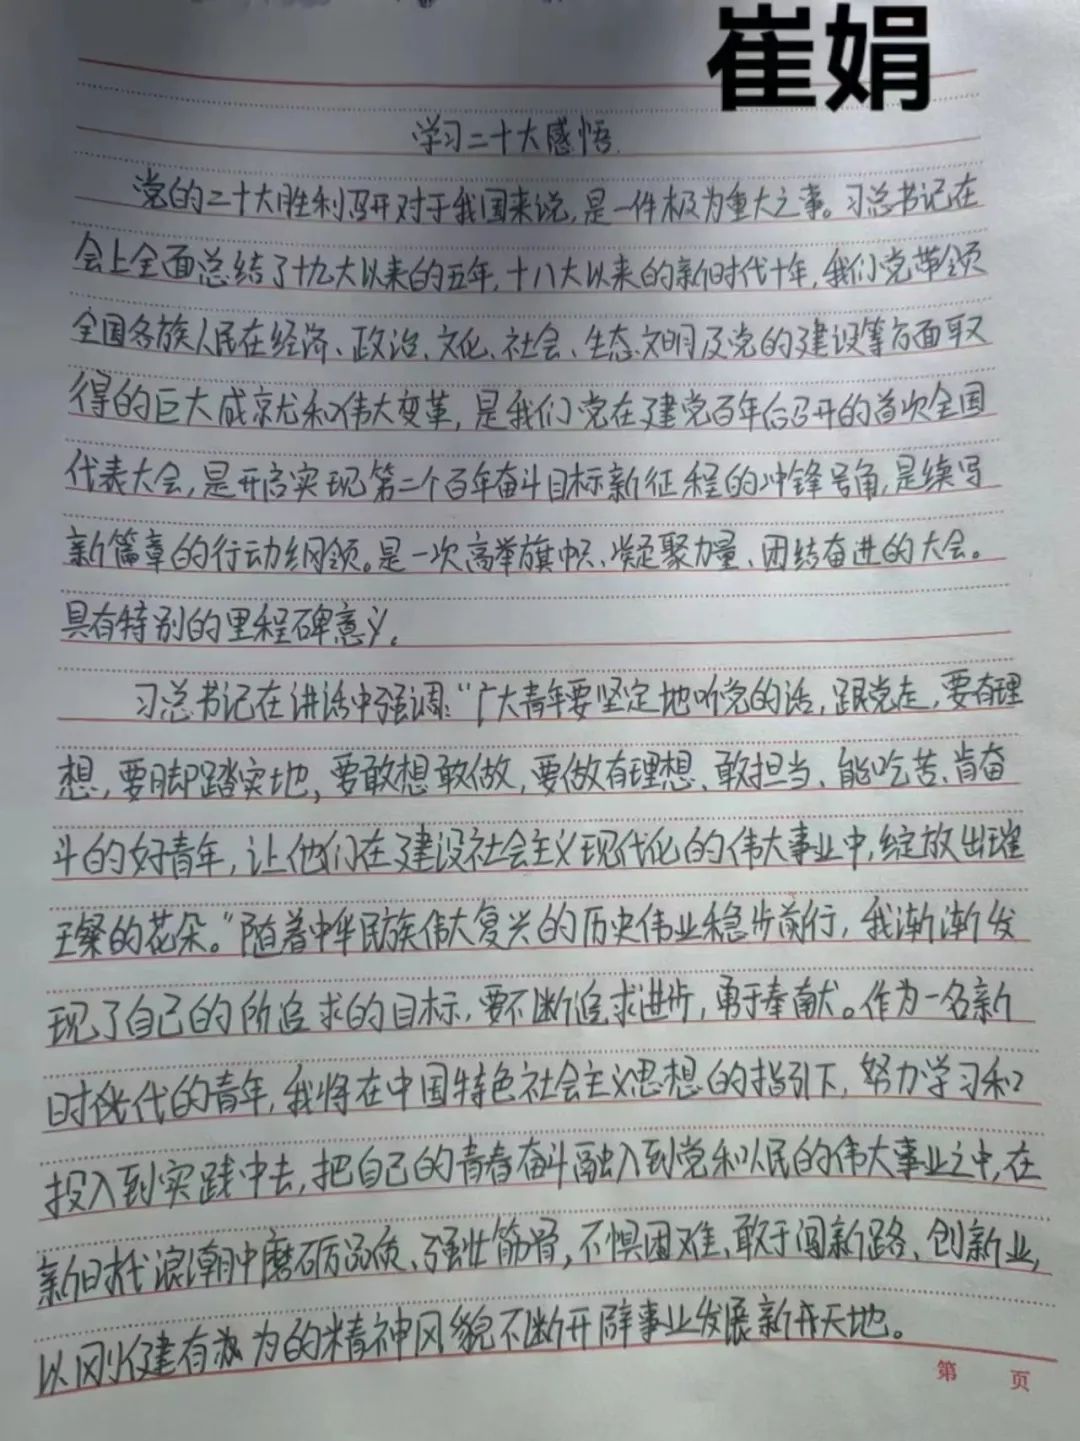 崔娟
学习二十大感悟
党的二十大胜利召开对于我国来说,是一件极为重大之事。习总书记在
会上全面总结了十九大以来的五年,十八大以来的新时代十年,我们党带领
全国各族人民在经济、政治、文化、社会、生态文明及党的建设等方面取
得的巨大成就和伟大变革,是我们党在建党百年后召开的首次全国
代表大会,是开启实现第二个百年奋斗目标新征程的冲锋号角,是续写
新篇章的行动纲领。是一次高举旗帜、凝聚力量、团结奋进的大会。
具有特别的里程碑意义。
习总书记在讲话中强调:“广大青年要坚定地听党的话,跟党走,要有理
想,要脚踏实地,要敢想敢做,要做有理想、敢担当、能吃苦、肯奋
斗的好青年,让他们在建设社会主义现代化的伟大事业中,绽放出璀
璨的花朵。”随着中华民族伟大复兴的历史伟业稳步前行,我渐渐发
现了自己的所追求的目标,要不断追求进步,勇于奉献。作为一名新
时代的青年,我将在中国特色社会主义思想的指引下,努力学习和
投入到实践中去,把自己的青春奋斗融入到党和人民的伟大事业之中,在
新时代浪潮中磨砺品质、强壮筋骨,不惧困难、敢于闯新路、创新业,
以刚健有为的精神风貌不断开辟事业发展新天地。
第 页